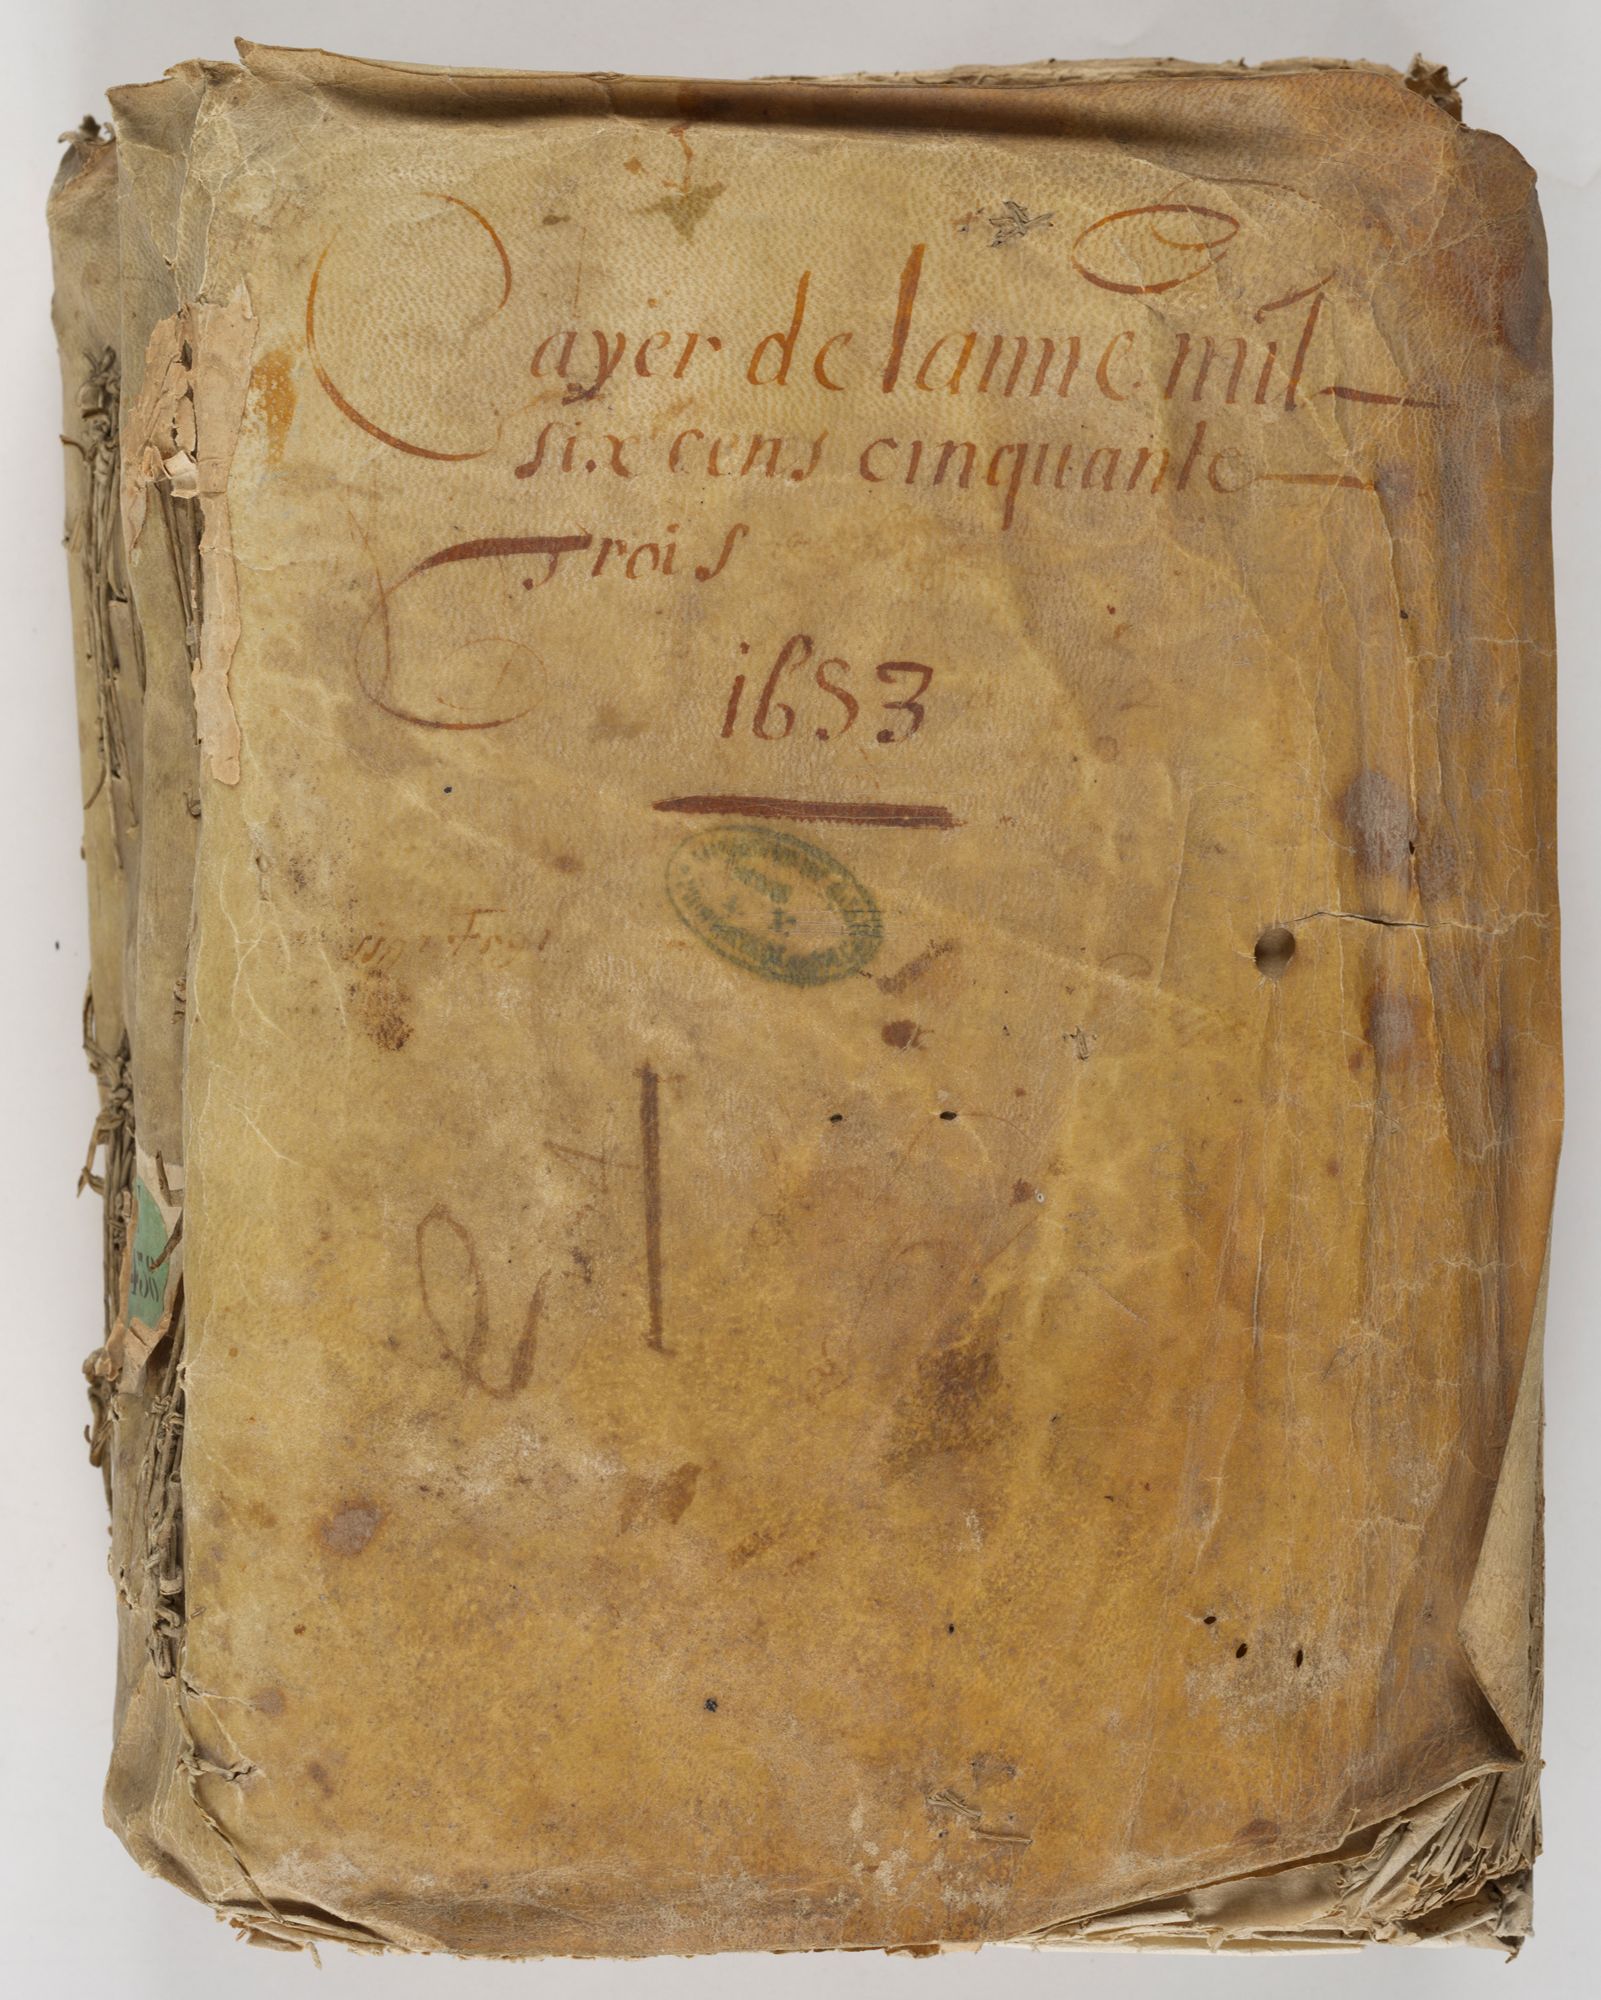 Cayer de lanne mil
six cens cinquante
Trois
1653